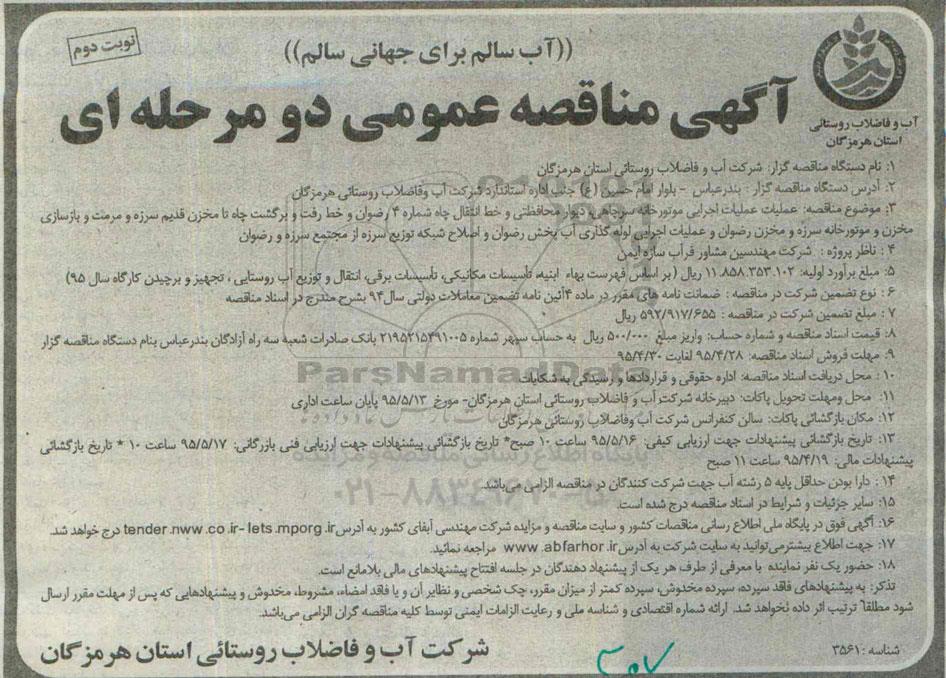 نوبت دوم
((آب سالم برای جهانی سالم))
آگهی مناقصه عمومی دو مرحله ای
آب و فاضلاب روستائی
استان هرمزگان
۱: نام دستگاه مناقصه گزار: شرکت آب و فاضلاب روستائی استان هرمزگان
۲: آدرس دستگاه مناقصه گزار : بندرعباس - بلوار امام حسین (ع) جنب اداره استاندارد شرکت آب وفاضلاب روستائی هرمزگان
۳: موضوع مناقصه: عملیات عملیات اجرایی موتورخانه سرچاهی، دیوار محافظتی و خط انتقال چاه شماره ۴ رضوان و خط رفت و برگشت چاه تا مخزن قدیم سرزه و مرمت و بازسازی
مخزن و موتورخانه سرزه و مخزن رضوان و عملیات اجرایی لوله گذاری آب پخش رضوان و اصلاح شبکه توزیع سرزه از مجتمع سرزه و رضوان
۴ : ناظر پروژه : شرکت مهندسین مشاور فرآب سازه ایمن
۵: مبلغ برآورد اولیه: ۱۱.۸۵۸.۳۵۳.۱۰۲ ریال (بر اساس فهرست بهاء ابنیه، تأسیسات مکانیکی، تأسیسات برقی، انتقال و توزیع آب روستایی ، تجهیز و برچیدن کارگاه سال ۹۵)
۶ : نوع تضمین شرکت در مناقصه : ضمانت نامه های مقرر در ماده ۴آئین نامه تضمین معاملات دولتی سال۹۴ بشرح مندرج در اسناد مناقصه
۷ : مبلغ تضمین شرکت در مناقصه : ۵۹۲/۹۱۷/۶۵۵ ریال
۸: قیمت اسناد مناقصه و شماره حساب: واریز مبلغ ۵۰۰/۰۰۰ ریال به حساب سپهر شماره ۲۱۹۵۲۱۵۴۹۱۰۰۵ بانک صادرات شعبه سه راه آزادگان بندرعباس بنام دستگاه مناقصه گزار
۹: مهلت فروش اسناد مناقصه: ۹۵/۴/۲۸ لغایت ۹۵/۴/۳۰
۱۰ : محل دریافت اسناد مناقصه: اداره حقوقی و قراردادها و رسیدگی به شکایات
۱۱: محل ومهلت تحویل پاکات: دبیرخانه شرکت آب و فاضلاب روستائی استان هرمزگان- مورخ ۹۵/۵/۱۳ پایان ساعت اداری
۱۲: مکان بازگشائی پاکات: سالن کنفرانس شرکت آب وفاضلاب روستائی هرمزگان
۱۳: تاریخ بازگشائی پیشنهادات جهت ارزیابی کیفی: ۹۵/۵/۱۶ ساعت ۱۰ صبح* تاریخ بازگشائی پیشنهادات جهت ارزیابی فنی بازرگانی: ۹۵/۵/۱۷ ساعت ۱۰ * تاریخ بازگشائی
پیشنهادات مالی: ۹۵/۴/۱۹ ساعت ۱۱ صبح
۱۴ : دارا بودن حداقل پایه ۵ رشته آب جهت شرکت کنندگان در مناقصه الزامی می‌باشد.
۱۵: سایر جزئیات و شرایط در اسناد مناقصه درج شده است.
۱۶: آگهی فوق در پایگاه ملی اطلاع رسانی مناقصات کشور و سایت مناقصه و مزایده شرکت مهندسی آبفای کشور به آدرسtender.nww.co.ir-iets.mporg.ir درج خواهد شد.
۱۷: جهت اطلاع بیشترمی‌توانید به سایت شرکت به آدرسwww.abfarhor.ir مراجعه نمائید.
۱۸: حضور یک نفر نماینده با معرفی از طرف هر یک از پیشنهاد دهندگان در جلسه افتتاح پیشنهادهای مالی بلامانع است.
تذکر: به پیشنهادهای فاقد سپرده، سپرده مخدوش، سپرده کمتر از میزان مقرر، چک شخصی و نظایر آن و یا فاقد امضاء، مشروط، مخدوش و پیشنهادهایی که پس از مهلت مقرر ارسال
شود مطلقاً ترتیب اثر داده نخواهد شد. ارائه شماره اقتصادی و شناسه ملی و رعایت الزامات ایمنی توسط کلیه مناقصه گران الزامی می‌باشد.
شناسه : ۳۵۶۱
شرکت آب و فاضلاب روستائی استان هرمزگان
ParsNamadData
پایگاه اطلاع رسانی مناقصه و مزایده